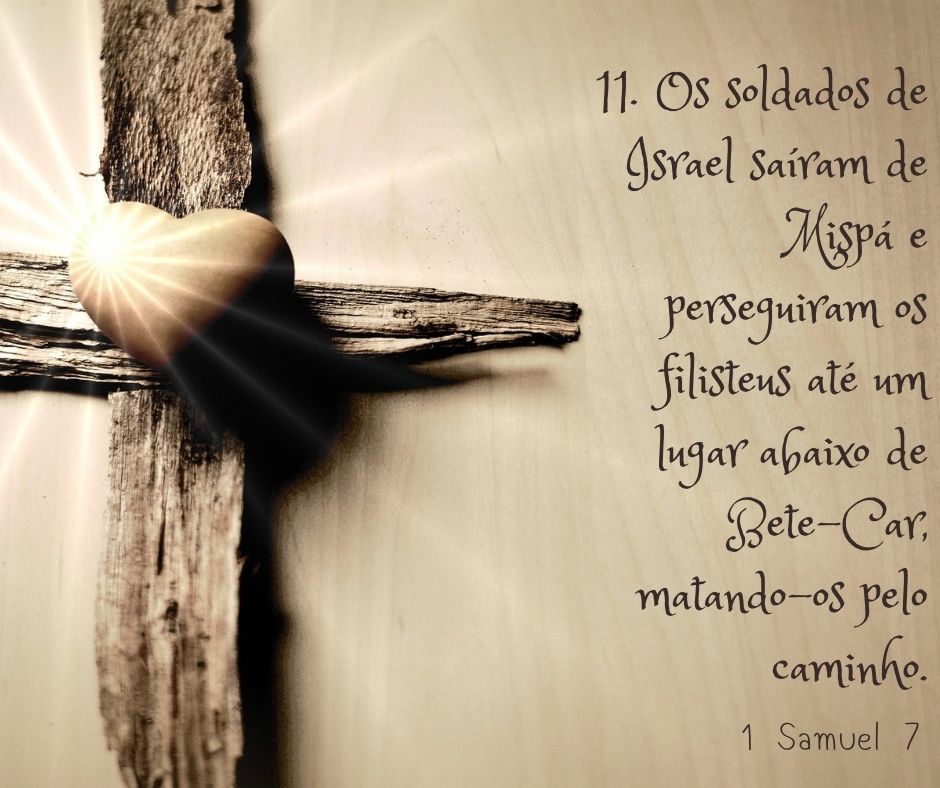 11. Os soldados de
Israel saíram de
Mispá e
perseguiram os
filisteus até um
lugar abaixo de
Bete-Car,
matando-os pelo
caminho.
1 Samuel 7